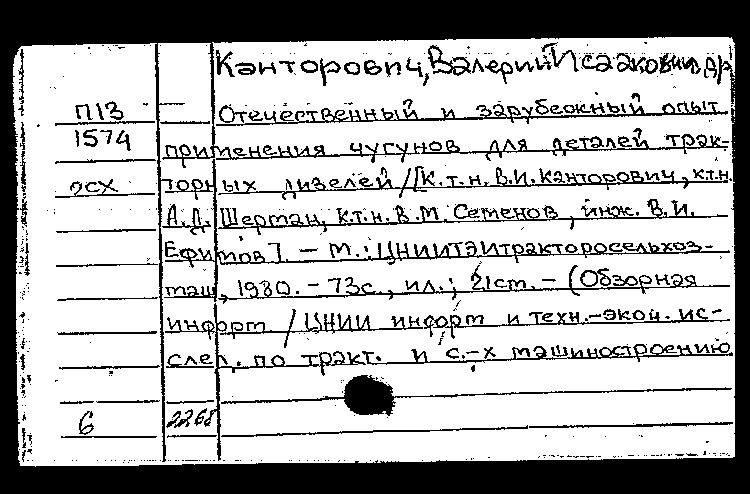 Канторович, Валерий Исаакович и др
П13 — Отечественный и зарубежный опыт
1574 применения чугунов для деталей трак-
эсх торных дизелей / [К.т.н. В.И. Канторович, к.т.н.
А.Д. Шерман, к.т.н. В.М. Семенов, инж. В.И.
Ефимов]. – М.: ЦНИИТЭИтракторосельхоз-
маш, 1980. – 73с., ил.; 21см. – (Обзорная
информ / ЦНИИ информ и техн.-экон. ис-
след. по тракт. и с.-х машиностроению
6 2268